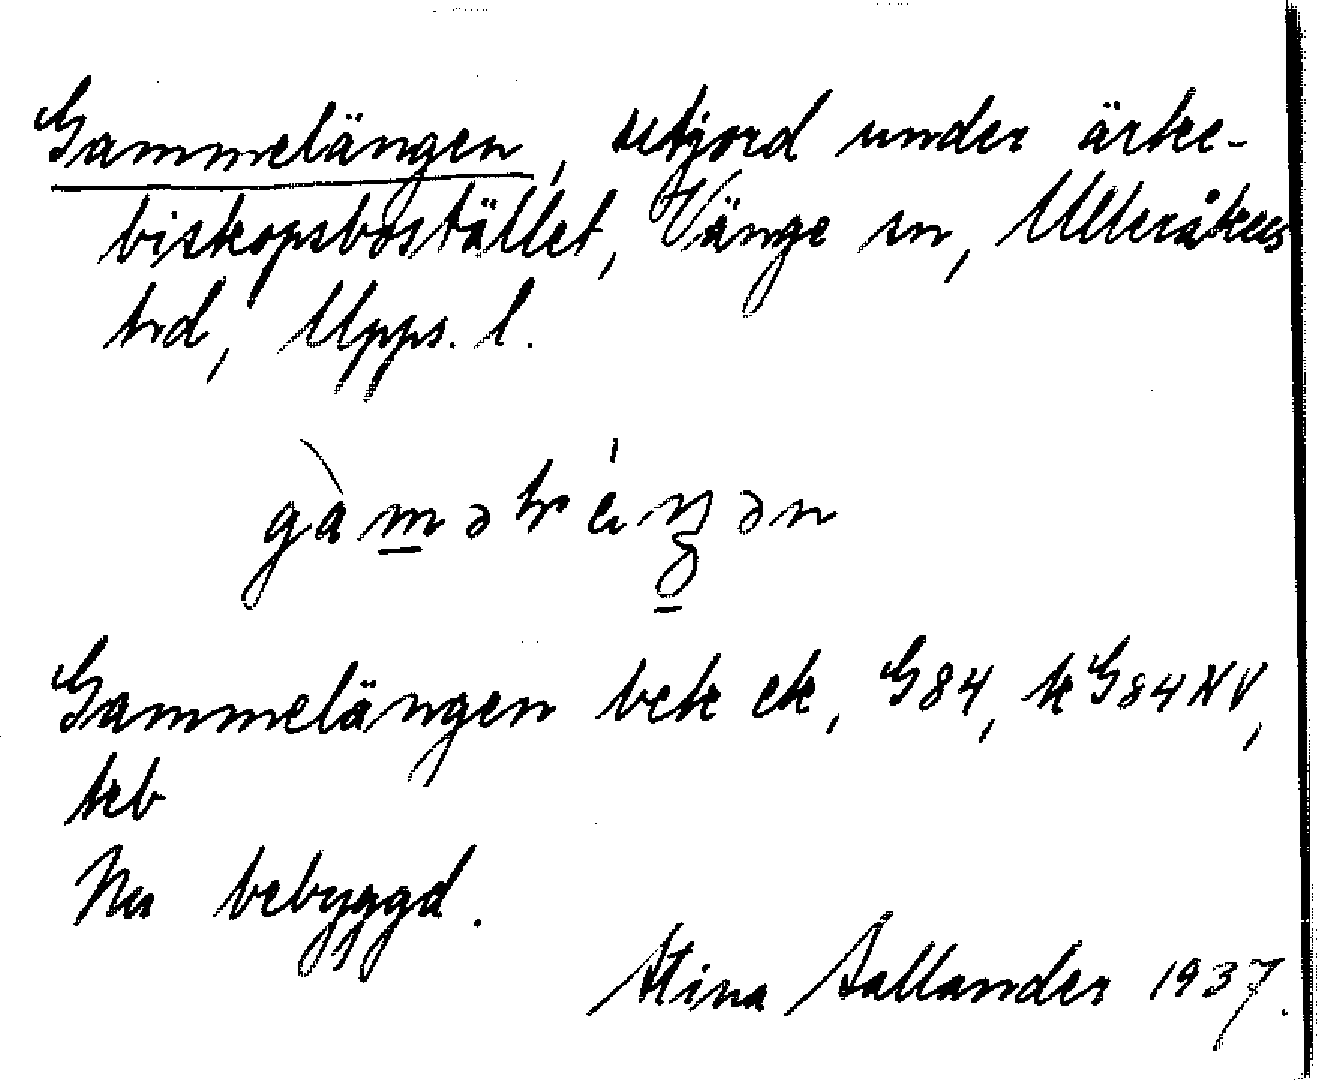 Gammelängen, utjord under ärke-
biskopsbostället, Vänge sn, Ulleråkers
hrd, Upps. l.
Gammelängen bek ek, G84, k G84NV,
heb
Nu bebyggd.
Stina Sallander 1937.